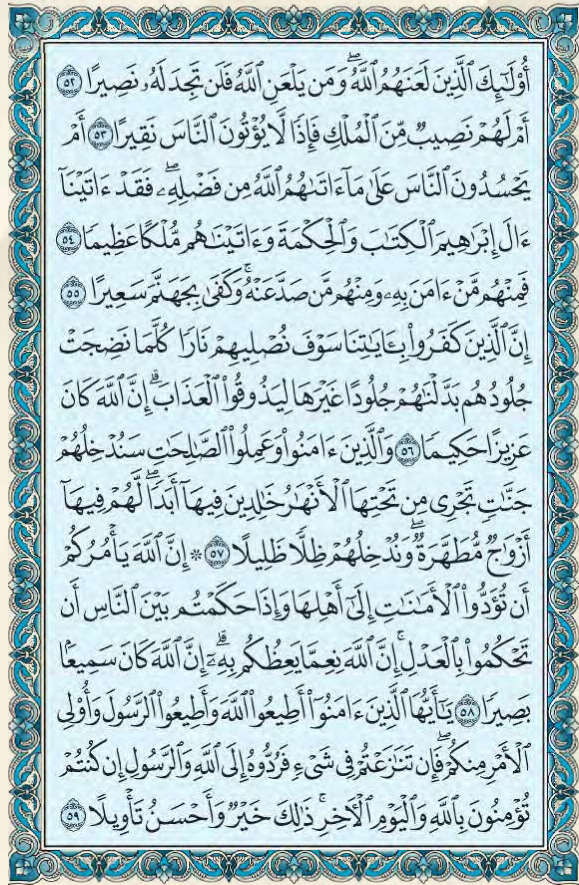 أُوْلَٰٓئِكَ ٱلَّذِينَ لَعَنَهُمُ ٱللَّهُۖ وَمَن يَلۡعَنِ ٱللَّهُ فَلَن تَجِدَ لَهُۥ نَصِيرًا ٥٢
أَمۡ لَهُمۡ نَصِيبٞ مِّنَ ٱلۡمُلۡكِ فَإِذٗا لَّا يُؤۡتُونَ ٱلنَّاسَ نَقِيرًا ٥٣ أَمۡ
يَحۡسُدُونَ ٱلنَّاسَ عَلَىٰ مَآ ءَاتَىٰهُمُ ٱللَّهُ مِن فَضۡلِهِۦۖ فَقَدۡ ءَاتَيۡنَآ
ءَالَ إِبۡرَٰهِيمَ ٱلۡكِتَٰبَ وَٱلۡحِكۡمَةَ وَءَاتَيۡنَٰهُم مُّلۡكًا عَظِيمٗا ٥٤
فَمِنۡهُم مَّنۡ ءَامَنَ بِهِۦ وَمِنۡهُم مَّن صَدَّ عَنۡهُۚ وَكَفَىٰ بِجَهَنَّمَ سَعِيرًا ٥٥
إِنَّ ٱلَّذِينَ كَفَرُواْ بِـَٔايَٰتِنَا سَوۡفَ نُصۡلِيهِمۡ نَارٗا كُلَّمَا نَضِجَتۡ
جُلُودُهُم بَدَّلۡنَٰهُمۡ جُلُودًا غَيۡرَهَا لِيَذُوقُواْ ٱلۡعَذَابَۗ إِنَّ ٱللَّهَ كَانَ
عَزِيزًا حَكِيمٗا ٥٦ وَٱلَّذِينَ ءَامَنُواْ وَعَمِلُواْ ٱلصَّٰلِحَٰتِ سَنُدۡخِلُهُمۡ
جَنَّٰتٖ تَجۡرِي مِن تَحۡتِهَا ٱلۡأَنۡهَٰرُ خَٰلِدِينَ فِيهَآ أَبَدٗاۖ لَّهُمۡ فِيهَآ
أَزۡوَٰجٞ مُّطَهَّرَةٞۖ وَنُدۡخِلُهُمۡ ظِلّٗا ظَلِيلًا ٥٧ ۞ إِنَّ ٱللَّهَ يَأۡمُرُكُمۡ
أَن تُؤَدُّواْ ٱلۡأَمَٰنَٰتِ إِلَىٰٓ أَهۡلِهَا وَإِذَا حَكَمۡتُم بَيۡنَ ٱلنَّاسِ أَن
تَحۡكُمُواْ بِٱلۡعَدۡلِۚ إِنَّ ٱللَّهَ نِعِمَّا يَعِظُكُم بِهِۦٓۗ إِنَّ ٱللَّهَ كَانَ سَمِيعَۢا
بَصِيرٗا ٥٨ يَٰٓأَيُّهَا ٱلَّذِينَ ءَامَنُوٓاْ أَطِيعُواْ ٱللَّهَ وَأَطِيعُواْ ٱلرَّسُولَ وَأُوْلِي
ٱلۡأَمۡرِ مِنكُمۡۖ فَإِن تَنَٰزَعۡتُمۡ فِي شَيۡءٖ فَرُدُّوهُ إِلَى ٱللَّهِ وَٱلرَّسُولِ إِن كُنتُمۡ
تُؤۡمِنُونَ بِٱللَّهِ وَٱلۡيَوۡمِ ٱلۡأٓخِرِۚ ذَٰلِكَ خَيۡرٞ وَأَحۡسَنُ تَأۡوِيلًا ٥٩